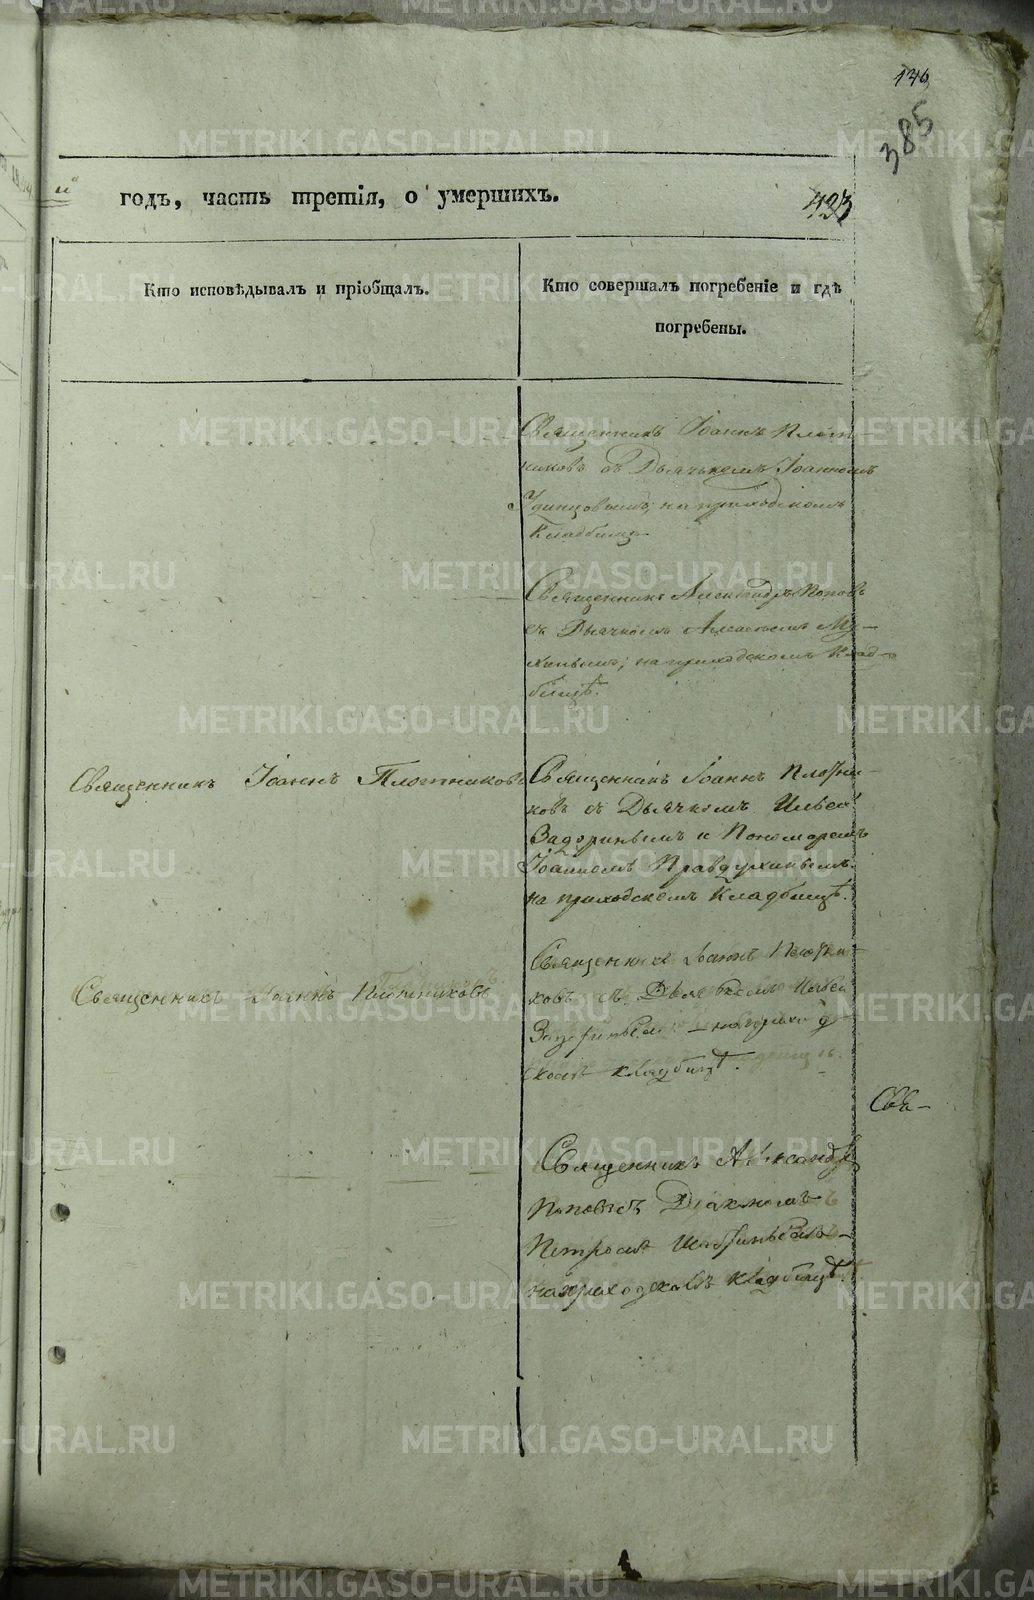 136
385
й годъ, часть третія, о умершихъ.
423
Кто исповѣдывалъ и пріобщалъ.
Кто совершалъ погребеніе и гдѣ
погребены.
Священникъ Іоаннъ Плот-
никовъ съ Дьячькомъ Іоанномъ
Удинцовымъ, на приходскомъ
Кладбищѣ
Священникъ Александръ Поповъ
съ Дьячкомъ Алексѣемъ Му-
хинымъ, на приходскомъ Клад-
бищѣ.
Священникъ Іоаннъ Плотниковъ
Священникъ Іоаннъ Плотни-
ковъ съ Дьячкомъ Ильей
Задоринымъ и Пономаремъ
Іоанномъ Правдухинымъ
на приходскомъ Кладбищѣ.
Священникъ Іоаннъ Плотниковъ
Священникъ Іоаннъ Плотни-
ковъ съ Дьячкомъ Ильей
Задоринымъ на приход-
скомъ кладбищѣ.
Свя-
Священникъ Александръ
Поповъ съ Діакономъ
Петромъ
на приходскомъ кладбищѣ.
METRIKI.GASO-URAL.RU